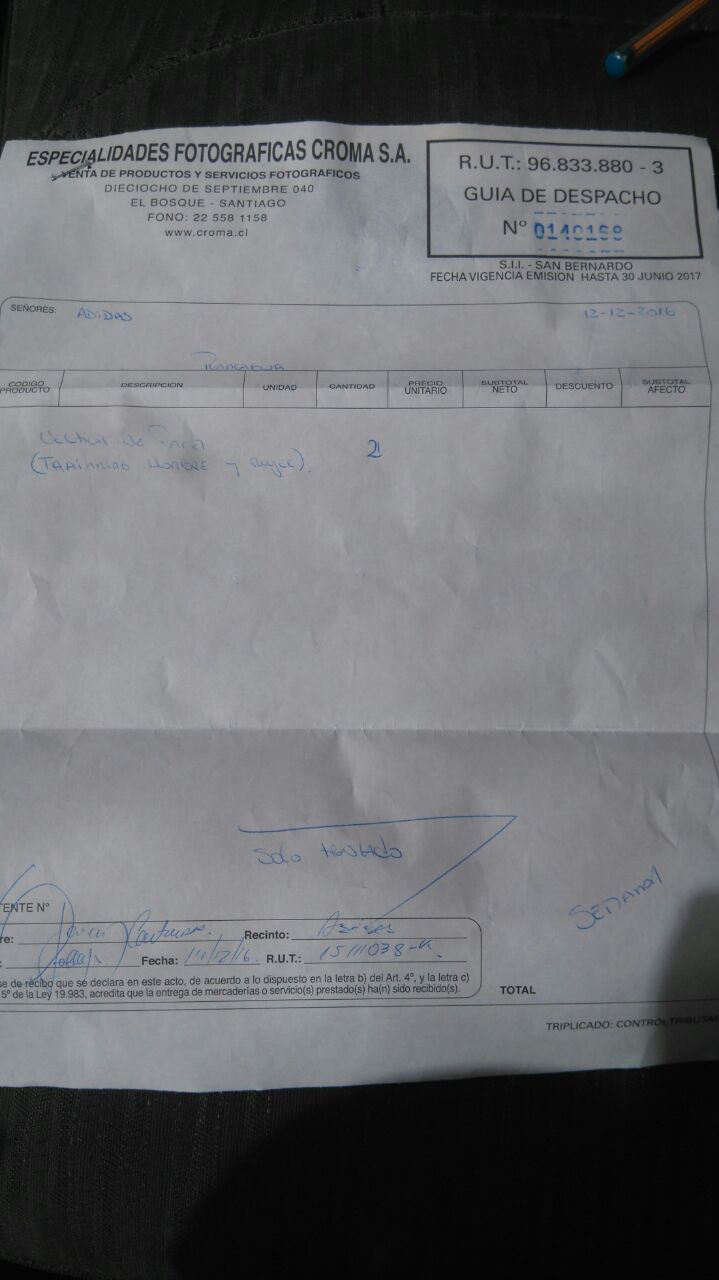 ESPECIALIDADES FOTOGRAFICAS CROMA S.A.
VENTA DE PRODUCTOS Y SERVICIOS FOTOGRAFICOS
DIECIOCHO DE SEPTIEMBRE 040
EL BOSQUE - SANTIAGO
FONO: 22 558 1158
www.croma.cl
R.U.T.: 96.833.880 - 3
GUIA DE DESPACHO
Nº 0140168
S.I.I. - SAN BERNARDO
FECHA VIGENCIA EMISION HASTA 30 JUNIO 2017
SEÑORES: ADIDAS 12-12-2016
RANCAGUA
CODIGO PRODUCTO DESCRIPCION UNIDAD CANTIDAD PRECIO UNITARIO SUBTOTAL NETO DESCUENTO SUBTOTAL AFECTO
de 2
(TRAINNING HOMBRE y MUJER).
Solo
SEMANAL
ENTE Nº
re: Recinto: Adidas
Fecha: 14/12/16. R.U.T.: 15111038-K.
se de recibo que se declara en este acto, de acuerdo a lo dispuesto en la letra b) del Art. 4º, y la letra c)
5º de la Ley 19.983, acredita que la entrega de mercaderías o servicio(s) prestado(s) ha(n) sido recibido(s).
TOTAL
TRIPLICADO: CONTROL TRIBUTAR